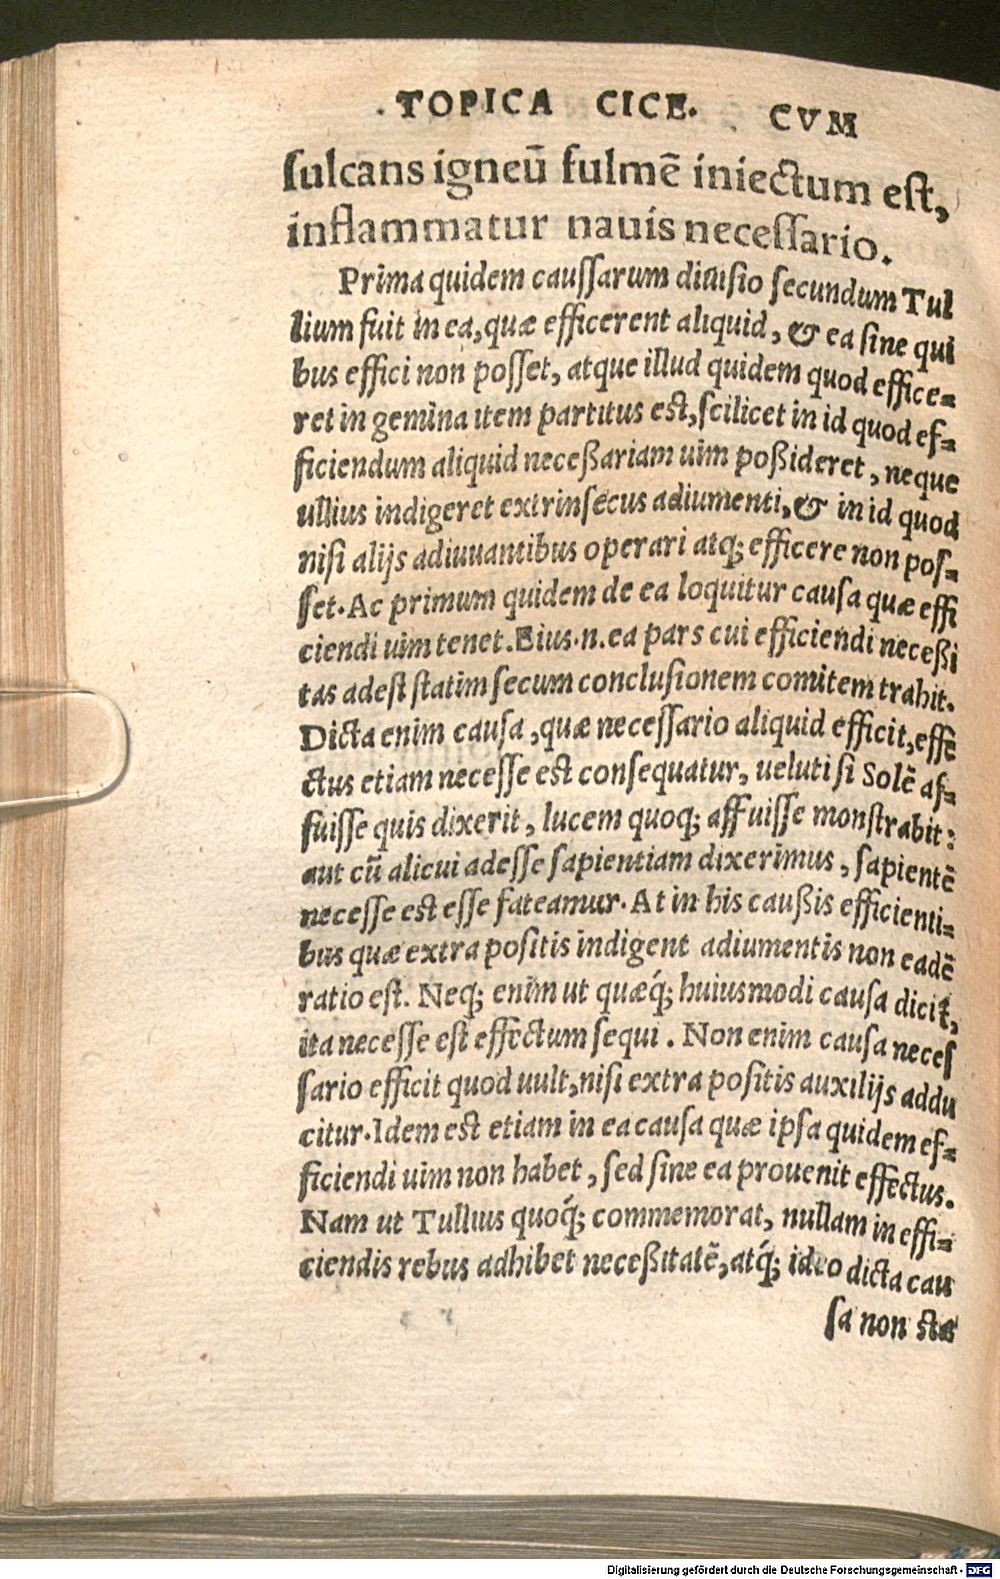 TOPICA CICE. CVM
sulcans igneū fulmē iniectum est,
inflammatur nauis necessario.
Prima quidem caussarum diuisio secundum Tul
lium fuit in ea, quæ efficerent aliquid, & ea sine qui
bus effici non posset, atque illud quidem quod effice-
ret in gemina item partitus est, scilicet in id quod ef-
ficiendum aliquid neceßariam uim poßideret, neque
ullius indigeret extrinsecus adiumenti, & in id quod
nisi alijs adiuuantibus operari atq; efficere non pos-
set. Ac primum quidem de ea loquitur causa quæ effi
ciendi uim tenet. Eius.n. ea pars cui efficiendi neceßi
tas adest statim secum conclusionem comitem trahit.
Dicta enim causa, quæ necessario aliquid efficit, effe
ctus etiam necesse est consequatur, ueluti si Solē af-
fuisse quis dixerit, lucem quoq; affuisse monstrabit:
aut cū alicui adesse sapientiam dixerimus, sapientē
necesse est esse fateamur. At in his caußis efficienti-
bus quæ extra positis indigent adiumentis non eadē
ratio est. Neq; enim ut quæq́; huiusmodi causa dicit̃,
ita necesse est effectum sequi. Non enim causa neces
sario efficit quod uult, nisi extra positis auxilijs addu
citur. Idem est etiam in ea causa quæ ipsa quidem ef-
ficiendi uim non habet, sed sine ea prouenit effectus.
Nam ut Tullius quoq́; commemorat, nullam in effi-
ciendis rebus adhibet neceßitatē, atq́; ideo dicta cau
sa non sta
Digitalisierung gefördert durch die Deutsche Forschungsgemeinschaft - DFG